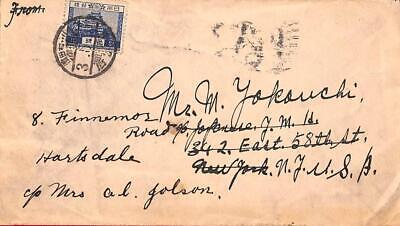 From:
Mr. M. Yokouchi,
8. Finnemor
Road c/o Japanese J. M. H.
342 East 58th St.
Hartsdale
New York. N.Y. U.S.A.
c/o Mrs a.l. golson.